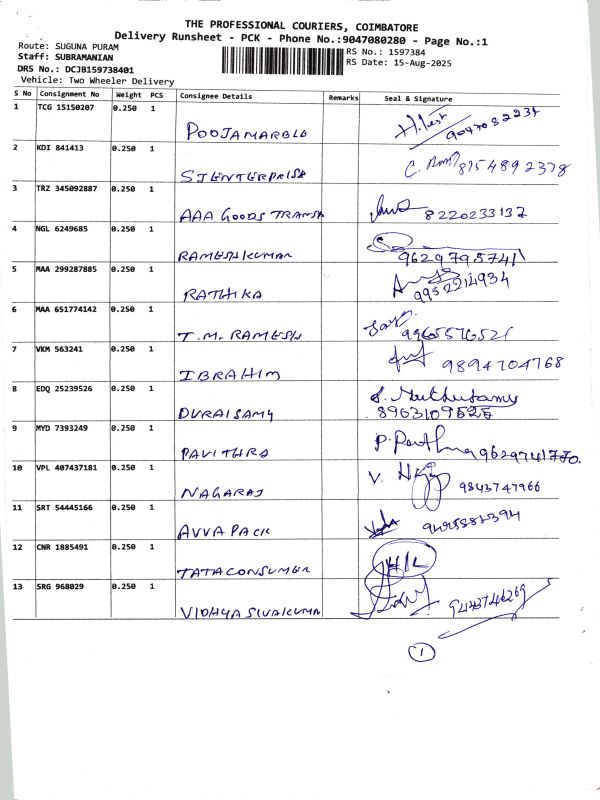 THE PROFESSIONAL COURIERS, COIMBATORE
Delivery Runsheet - PCK - Phone No.:9047080280 - Page No.:1
Route: SUGUNA PURAM
RS No.: 1597384
Staff: SUBRAMANIAN
RS Date: 15-Aug-2025
DRS No.: DCJB159738401
Vehicle: Two Wheeler Delivery
S No Consignment No Weight PCS Consignee Details Remarks Seal & Signature
1 TCG 15150207 0.250 1
POOJAMARBLE
2 KDI 841413 0.250 1
SJENTERPRISE 8754892378
3 TRZ 345092887 0.250 1
AAA GOODS TRANSP 8220233137
4 NGL 6249685 0.250 1
RAMESHKUMAR 9629795741
5 MAA 299287885 0.250 1
RATHIKA 9952214934
6 MAA 651774142 0.250 1
T.M. RAMESH 9965576521
7 VKM 563241 0.250 1
IBRAHIM 9894704768
8 EDQ 25239526 0.250 1
DURAISAMY S. Muthusamy
8963109525
9 MYD 7393249 0.250 1
PAVITHRA 9629741770.
10 VPL 407437181 0.250 1
NAGARAJ V. 9843747966
11 SRT 54445166 0.250 1
AVVA PACK
12 CNR 1885491 0.250 1
TATACONSUMER
13 SRG 968029 0.250 1
VIDHYA SIVAKUMA
1